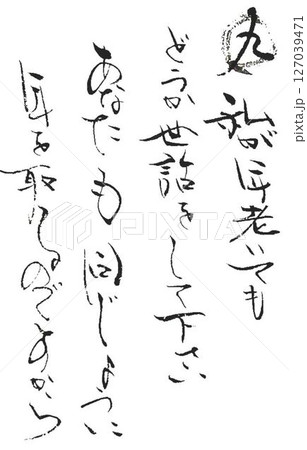 九 私が年老いても
どうか世話をして下さい
あなたも同じように
年を取るのですから
PIXTA
pixta.jp - 127039471